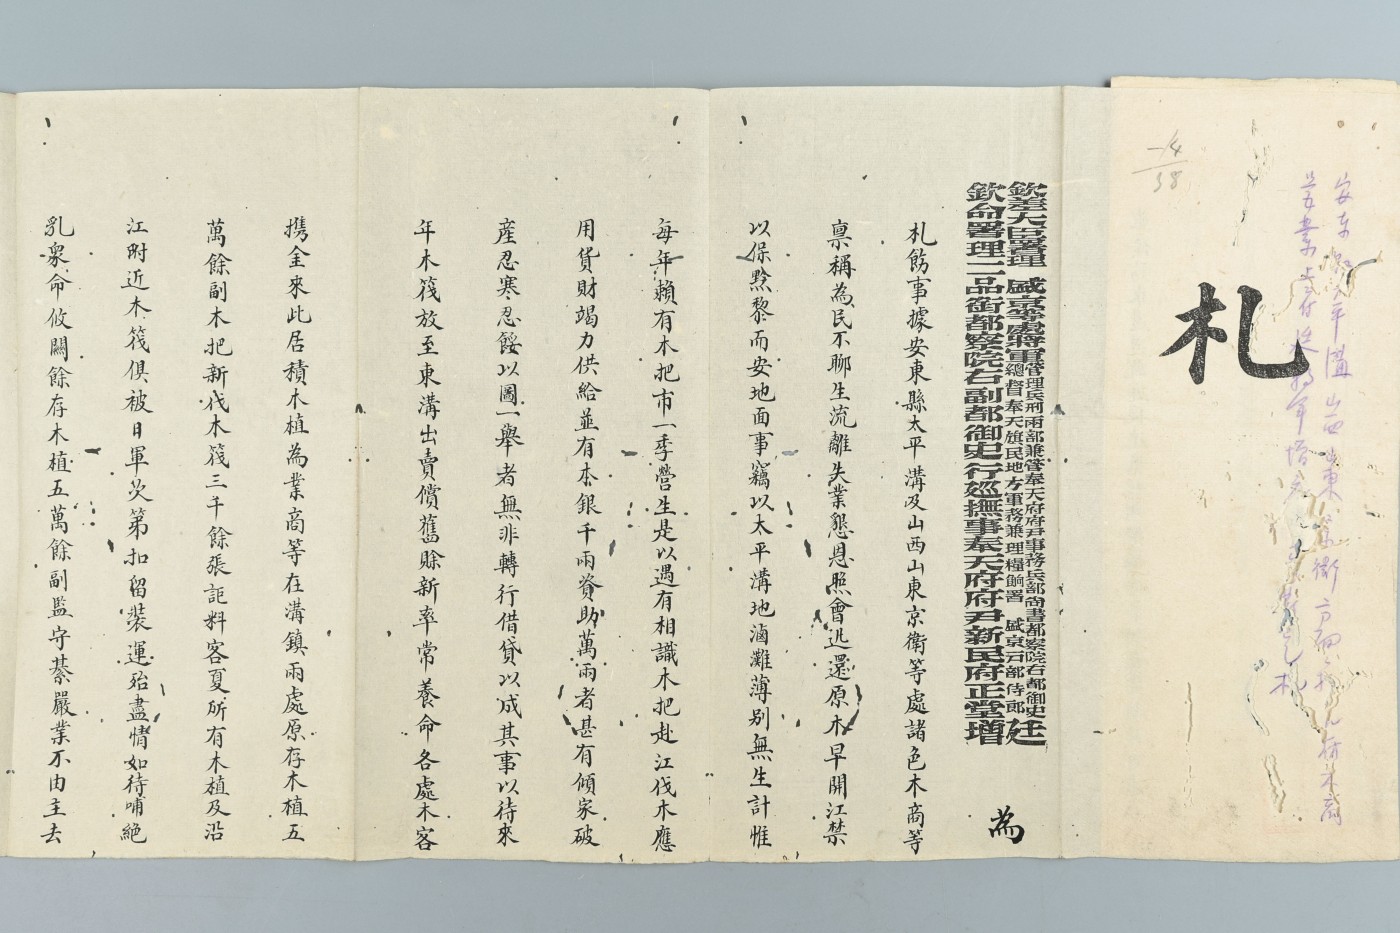 札
欽差大臣署理 盛京等處將軍管理兵刑兩部兼管奉天府府尹事務兵部尚書都察院右都御史
總督奉天旗民地方軍務兼理糧餉署 盛京戶部侍郎 廷
欽命署理二品銜都察院右副都御史行巡撫事奉天府府尹新民府正堂增
為
札飭事據安東縣太平溝及山西山東京衛等處諸色木商等
禀稱為民不聊生流離失業懇恩照會迅還原木早開江禁
以保黔黎而安地面事竊以太平溝地滷灘薄別無生計惟
每年賴有木把市一季營生是以遇有相識木把赴江伐木應
用貨財竭力供給並有本銀千兩資助萬兩者甚有傾家破
產忍寒忍餒以圖一舉者無非轉行借貸以成其事以待來
年木筏放至東溝出賣償舊賒新率常養命各處木客
携金來此居積木植為業商等在溝鎮兩處原存木植五
萬餘副木把新伐木筏三千餘張詎料客夏所有木植及沿
江附近木筏俱被日軍次第扣留裝運殆盡情如待哺絕
乳眾命攸關餘存木植五萬餘副監守綦嚴業不由主去